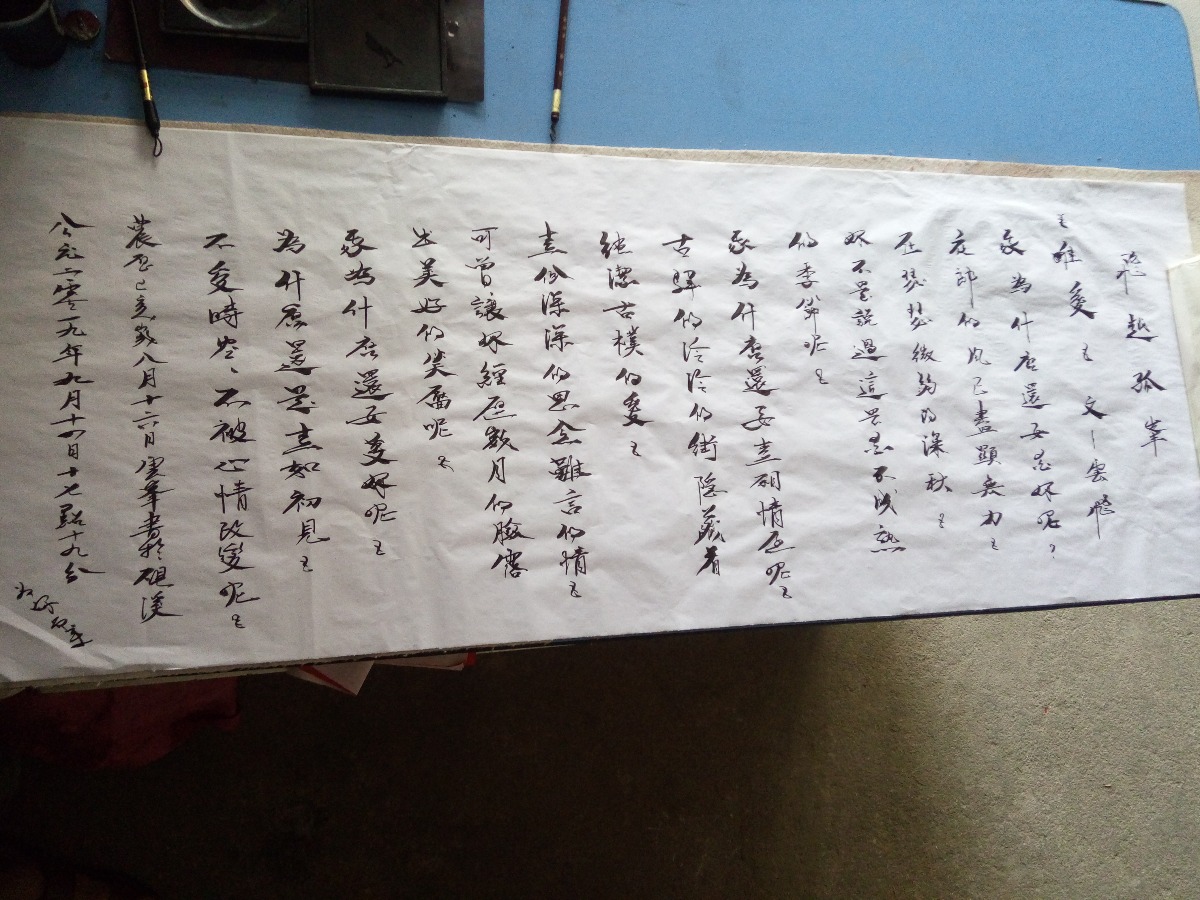 飛越孤峯
唯愛 文 雲
我為什麼還要戀妳呢？
夜郎的風已盡顯無力
在瑟瑟微夠的深秋
妳不是說過這是戀不成熟
的季節呢
我為什麼還要這痴情在呢
古驛的泠泠的街隱藏着
純潔古樸的愛
這份深深的思念難言的情
可曾讓妳經歷歲月的臉露
出美好的笑靨呢
我為什麼還要愛妳呢
為什麼還是這如初見
不受時空、不被心情改變呢
農歷己亥歲八月十六日雲峯書於硯溪
公元二零一九年九月十四日十七點十九分